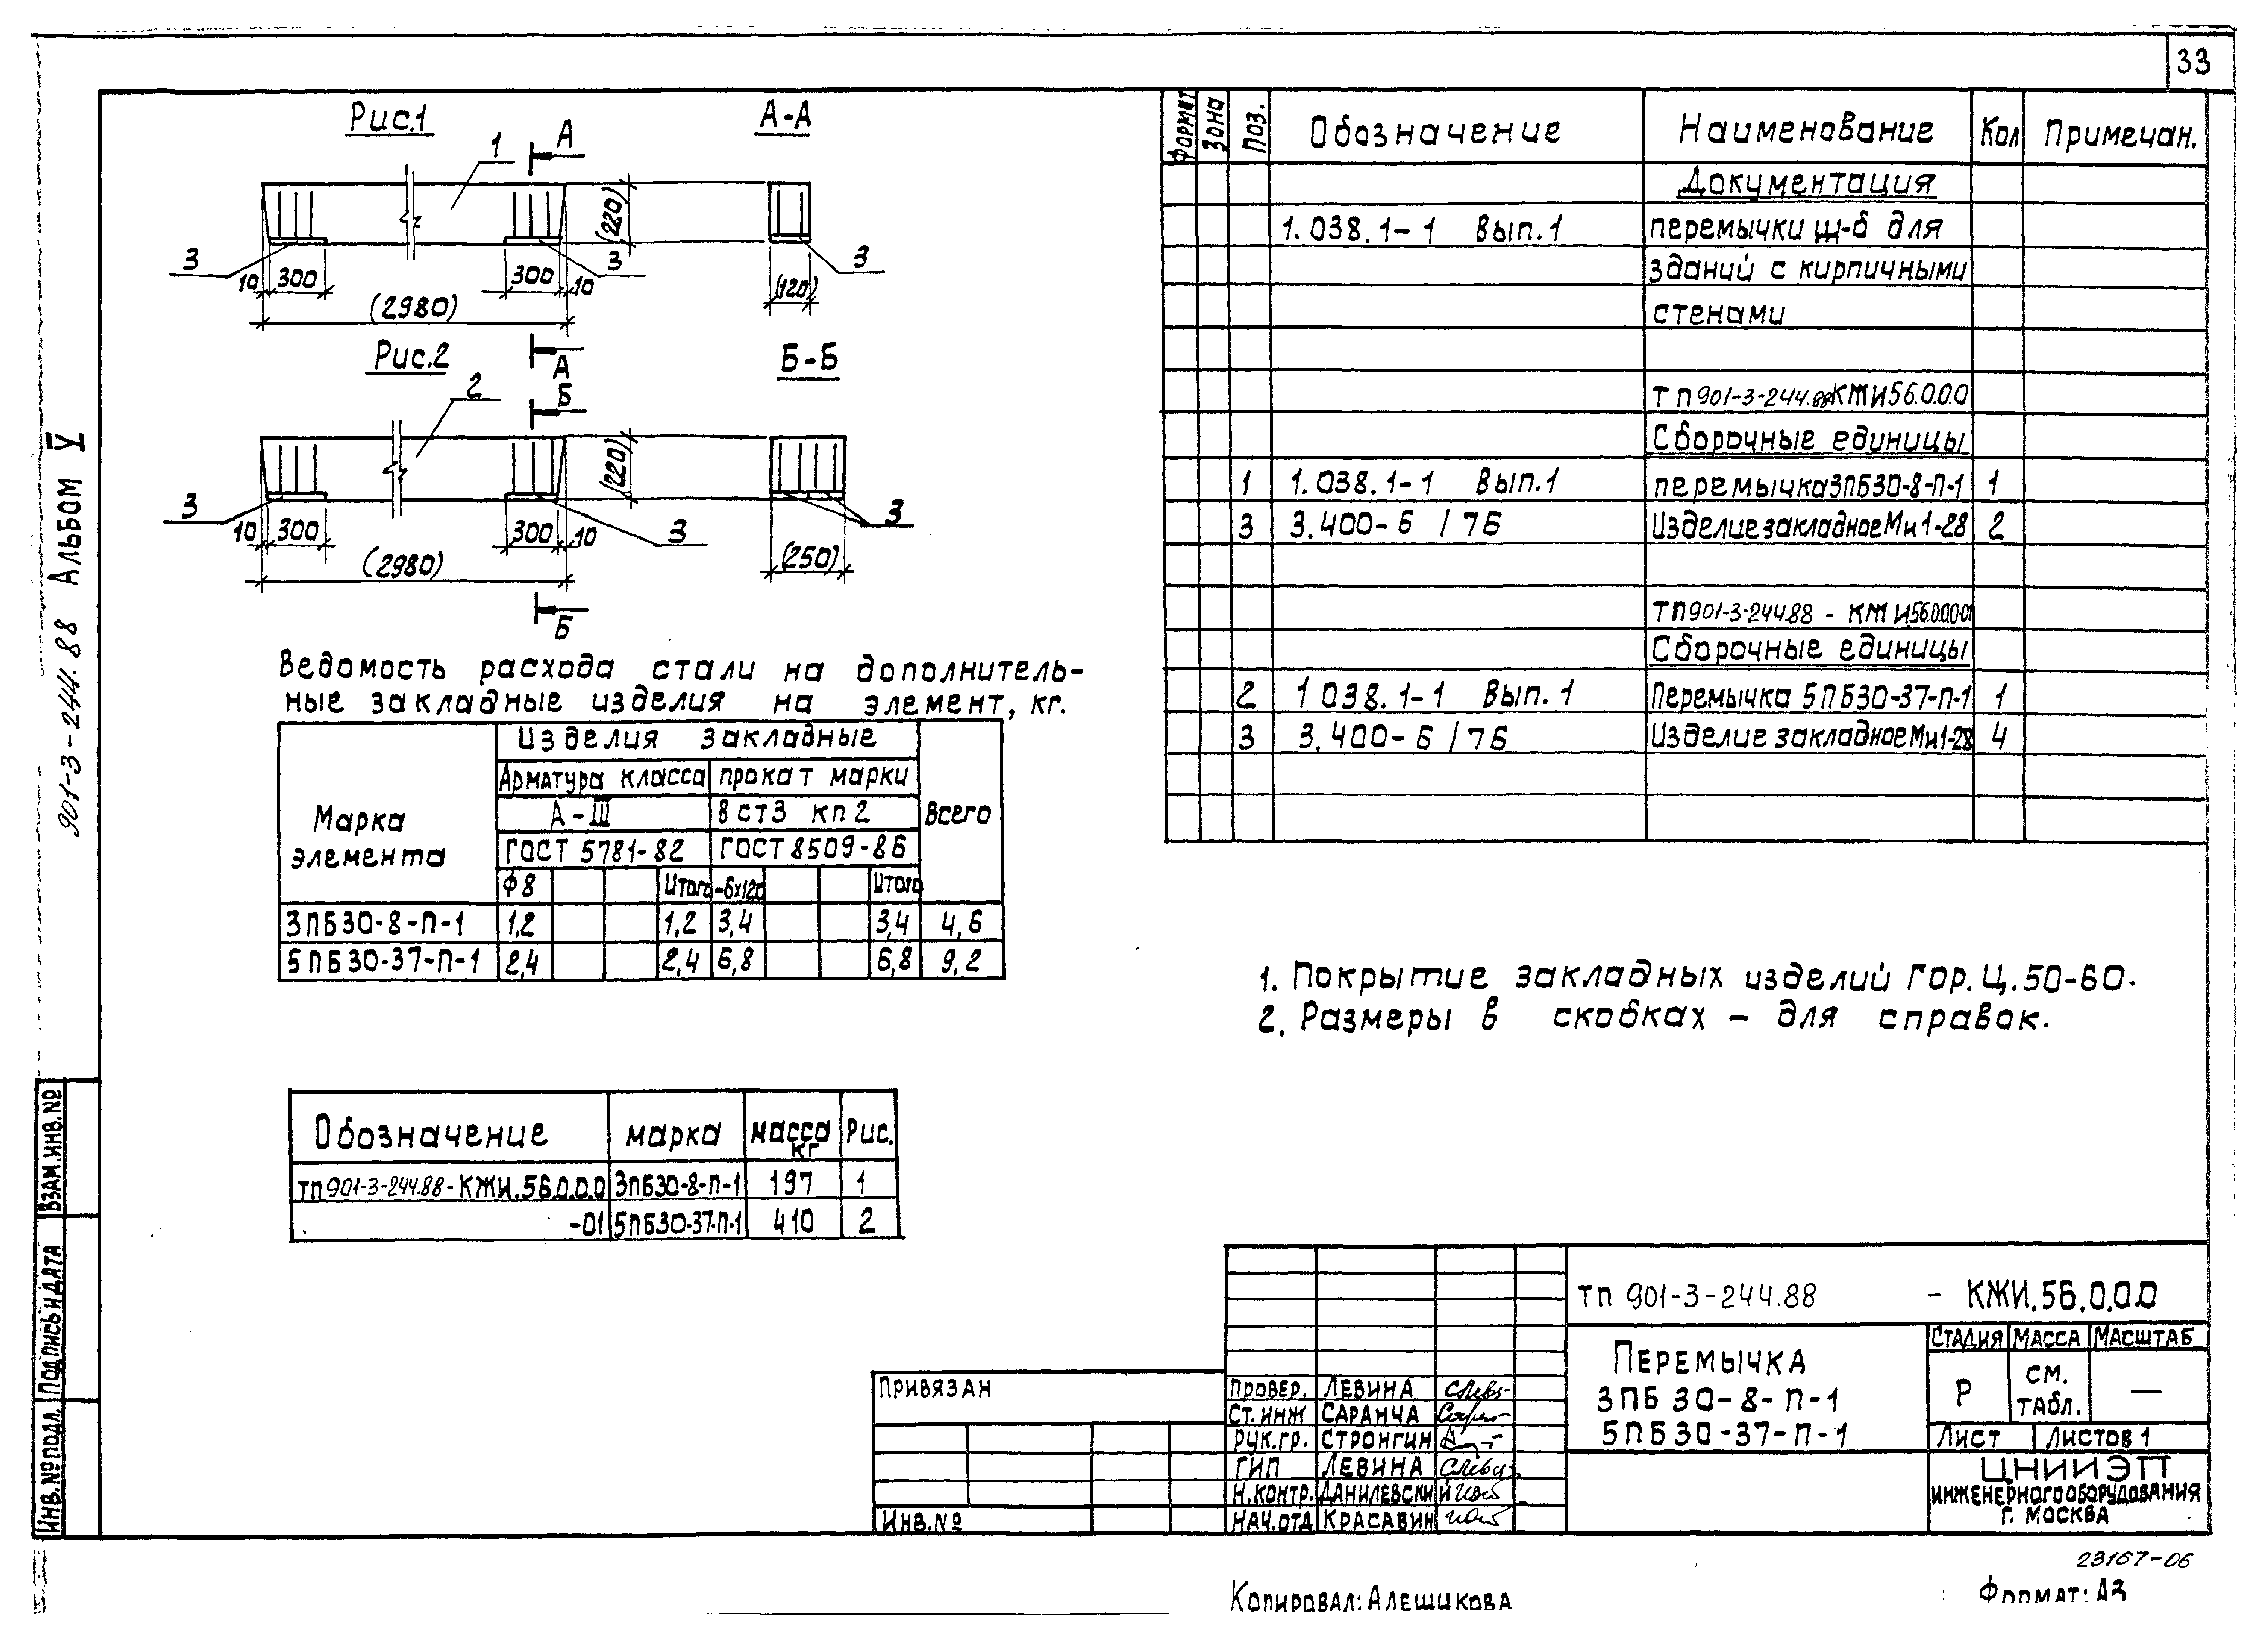 33
901-3-244.88 Альбом V
Рис.1
А-А
1
А
3
3
3
10
300
300
10
(2980)
(220)
(120)
А
Рис.2
Б-Б
2
Б
3
3
3
10
300
300
10
(2980)
(220)
(250)
Б
Ведомость расхода стали на дополнитель-
ные закладные изделия на элемент, кг.
Марка элемента
Изделия закладные
Всего
Арматура класса
прокат марки
А-III
ВСт3 кп2
ГОСТ 5781-82
ГОСТ 8509-86
Ф8
Итого
-6х120
Итого
3ПБ30-8-П-1 1,2 1,2 3,4 3,4 4,6
5ПБ30-37-П-1 2,4 2,4 6,8 6,8 9,2
Обозначение марка масса кг Рис.
тп901-3-244.88-КЖИ.56.0.0.0 3ПБ30-8-П-1 197 1
-01 5ПБ30-37-П-1 410 2
Формат Зона Поз. Обозначение Наименование Кол Примечан.
Документация
1.038.1-1 Вып.1 перемычки ж-б для
зданий с кирпичными
стенами
тп901-3-244.88КЖИ56.0.0.0
Сборочные единицы
1 1.038.1-1 Вып.1 перемычка3ПБ30-8-П-1 1
3 3.400-6 /76 Изделие закладное Ми1-28 2
тп901-3-244.88 - КЖИ.56.0.0.0-01
Сборочные единицы
2 1 038.1-1 Вып.1 Перемычка 5ПБ30-37-П-1 1
3 3.400-6 /76 Изделие закладное Ми1-28 4
1. Покрытие закладных изделий Гор.Ц.50-60.
2. Размеры в скобках - для справок.
Взам.инв.№
Подпись и дата
Инв.№ подл.
Привязан
Инв.№
Провер. Левина
Ст.инж Саранча
Рук.гр. Стронгин
ГИП Левина
Н.контр. Данилевский
Нач.отд Красавин
тп 901-3-244.88 - КЖИ.56.0.0.0
Перемычка
3ПБ 30-8-П-1
5ПБ30-37-П-1
Стадия Масса Масштаб
Р см. табл. —
Лист Листов 1
ЦНИИЭП
инженерного оборудования
г. Москва
23167-06
Копировал: Алешикова
Формат: А3